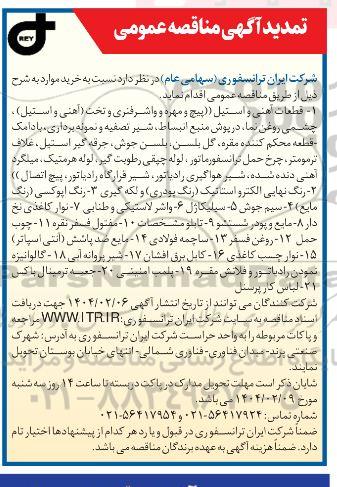 تمدید آگهی مناقصه عمومی
REY
شرکت ایران ترانسفوری (سهامی عام) در نظر دارد نسبت به خرید موارد به شرح
ذیل از طریق مناقصه عمومی اقدام نماید.
۱- قطعات آهنی و استیل ((پیچ و مهره و واشر فنری و تخت (آهنی و استیل)،
چشمی روغن نما، درپوش منبع انبساط، شیر تصفیه و نمونه برداری، بادامک
-قطعه محکم کننده مقره، گل بلسن، بلسن جوش، جرقه گیر استیل، غلاف
ترمومتر، چرخ حمل ترانسفورماتور، لوله جپقی رطوبت گیر، لوله هرمتیک، میلگرد
آهنی دنده شده، شیر هواگیری رادیاتور، شیر قرارگاه رادیاتور، پیچ اتصال))
۲- رنگ نهایی الکترو استاتیک (رنگ پودری) و لکه گیری ۳- رنگ اپوکسی (رنگ
مایع) ۴- سیم جوش ۵- سیلیکاژل ۶- واشر لاستیکی و طنابی ۷- نوار کاغذی نخ
دار ۸- مایع و پودر شستشو ۹- تابلو مشخصات ۱۰- مفتول فسفر نقره ۱۱- چوب
حمل ۱۲- روغن فسفر ۱۳- ساچمه فولادی ۱۴- مایع ضد پاشش (آنتی اسپاتر)
۱۵- نوار چسب کاغذی ۱۶- کابل برق افشان ۱۷- شیر پروانه آبی ۱۸- گالوانیزه
نمودن رادیاتور و فلاش مقره ۱۹- پلمپ امنیتی ۲۰- جعبه ترمینال باکس
۲۱- لباس کار پرسنل
شرکت کنندگان می توانند از تاریخ انتشار آگهی ۱۴۰۴/۰۲/۰۶ جهت دریافت
اسناد مناقصه به سایت شرکت ایران ترانسفوری: WWW.ITR.IR مراجعه
و پاکات مربوطه را به واحد حراست شرکت ایران ترانسفوری به آدرس: شهرک
صنعتی پرند- میدان فناوری- فناوری شمالی- انتهای خیابان بوستان تحویل
نمایند.
شایان ذکر است مهلت تحویل مدارک در پاکت در بسته تا ساعت ۱۴ روز سه شنبه
مورخ ۱۴۰۴/۰۲/۰۹ می باشد.
شماره تماس: ۵۶۴۱۷۹۲۴-۰۲۱ و ۵۶۴۱۷۹۵۴-۰۲۱
ضمناً شرکت ایران ترانسفوری در قبول و یا رد هر کدام از پیشنهادها اختیار تام
دارد. ضمناً هزینه آگهی به عهده برندگان مناقصه می باشد.